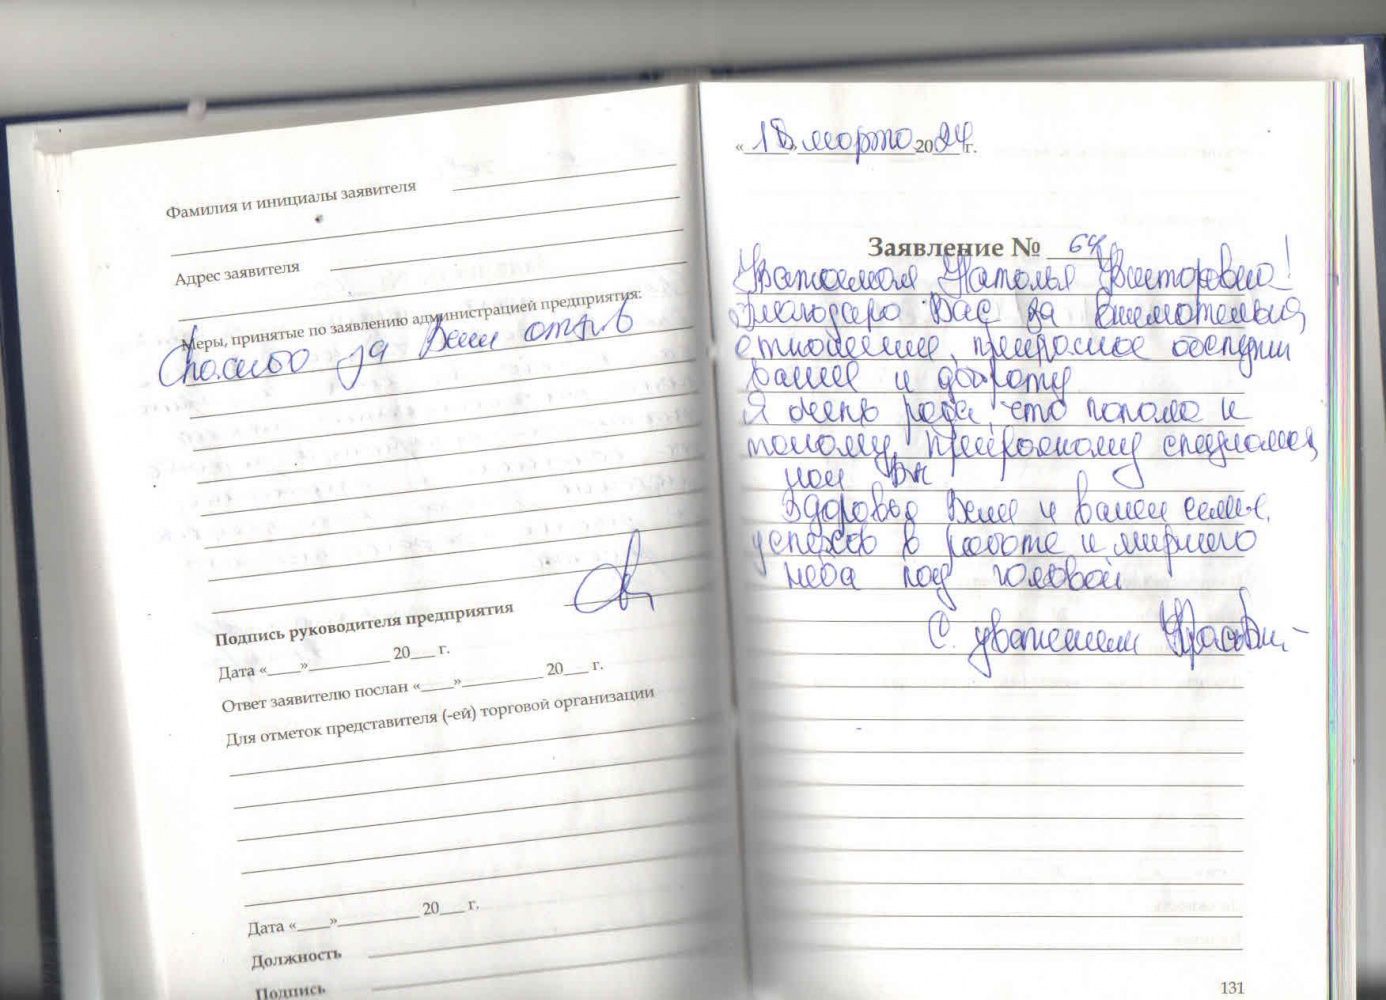 Фамилия и инициалы заявителя
Адрес заявителя
Меры, принятые по заявлению администрацией предприятия:
Спасибо за Ваш отзыв
Подпись руководителя предприятия
Дата «____»__________ 20___ г.
Ответ заявителю послан «____»__________ 20___ г.
Для отметок представителя (-ей) торговой организации
Дата «____»__________ 20___ г.
Должность
Подпись
«18» марта 2024 г.
Заявление № 64
Уважаемая Наталья Викторовна!
Благодарю Вас за внимательные
отношение, прекрасное обслужи
вание и доброту
Я очень рада, что попала к
такому прекрасному специалис
Здоровья Вам и вашей семье,
успехов в работе и мирного
неба под головой
С уважением
131